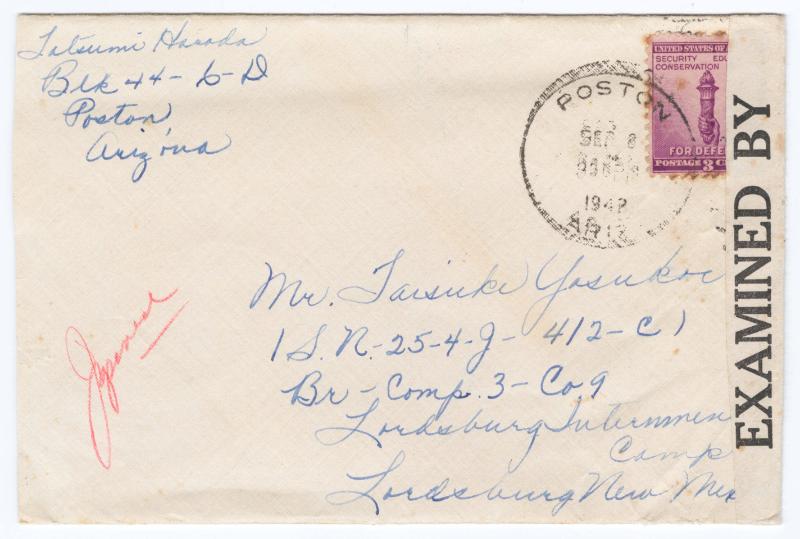 Tatsumi Harada
Blk 44-6-D
Poston
Arizona
POSTON
SEP 8
1942
ARIZ
UNITED STATES OF
SECURITY EDU
CONSERVATION
FOR DEFEN
POSTAGE 3 C
EXAMINED BY
Japanese
Mr. Taisuke
I S.N-25-4-J-412-CI
Br-Comp. 3-Co 9
Lordsburg Internmen
Camp
Lordsburg New Mex